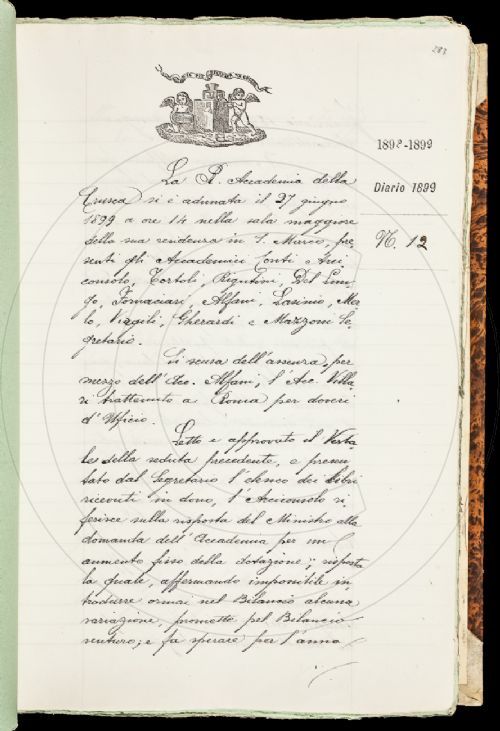 283
1898-1899
Diario 1899
N. 12
La R. Accademia della
Crusca si è adunata il 27 giugno
1899 a ore 14 nella sala maggiore
della sua residenza in S. Marco, pre
senti gli Accademici Conti Arci
consolo, Tortoli, Rigutini, Del Lun-
go, Fornaciari, Alfani, Lasinio, Mer
lo, Virgili, Gherardi e Mazzoni Se
gretario.
Si scusa dell'assenza, per
mezzo dell'Acc. Alfani, l'Acc. Villa
ri trattenuto a Roma per doveri
d'Ufficio.
Letto e approvato il Verba
le della seduta precedente, e presen
tato dal Segretario l'elenco dei libri
ricevuti in dono, l'Arciconsolo ri
ferisce sulla risposta del Ministro alla
domanda dell'Accademia per un
aumento fisso della dotazione; risposta
la quale, affermando impossibile in
trodurre ormai nel Bilancio alcuna
variazione, promette pel Bilancio
venturo; e fa sperare per l'anno